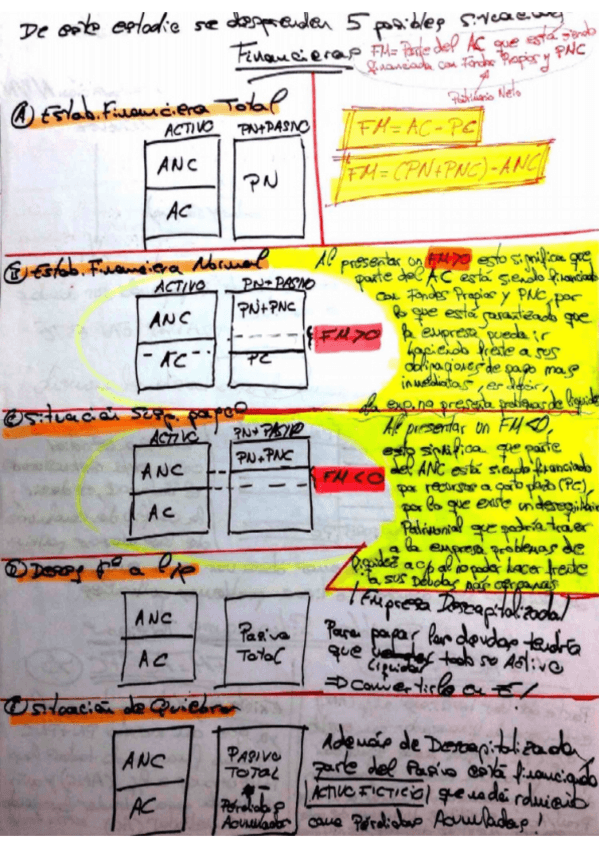 De este estudio se desprenden 5 posibles situaciones
Financieras
FM = Parte del AC que está siendo
financiada con Fondos Propios y PNC
Patrimonio Neto
A) Estab. Financiera Total
ACTIVO
PN+PASIVO
ANC
AC
PN
FM = AC - PC
FM = (PN + PNC) - ANC
B) Estab. Financiera Normal
ACTIVO
PN+PASIVO
ANC
AC
PN+PNC
PC
FM>0
Al presentar un FM>0 esto significa que
parte del AC está siendo financiado
con Fondos Propios y PNC, por
lo que está garantizado que
la empresa puede ir
haciendo frente a sus
obligaciones de pago mas
inmediatas, es decir,
la exp. no presenta problemas de liquidez
C) Situación Susp. pagos
ACTIVO
PN+PASIVO
ANC
AC
PN+PNC
FM<0
Al presentar un FM<0,
esto significa que parte
del ANC está siendo financiado
por recursos a corto plazo (PC),
por lo que existe un desequilibrio
Patrimonial que podría traer
a la empresa problemas de
liquidez a c/p al no poder hacer frente
a sus Deudas más cercanas
D) Deseq Fº a l/p
ANC
AC
Pasivo
Total
¡Empresa Descapitalizada!
Para pagar las deudas tendría
que liquidar todo su Activo
⇒ Convertirlo en €!
E) Situación de Quiebra
ANC
AC
PASIVO
TOTAL
Pérdidas
Acumuladas
Además de Descapitalizada,
parte del Pasivo está financiando
ACTIVO FICTICIO que
como Pérdidas Acumuladas!